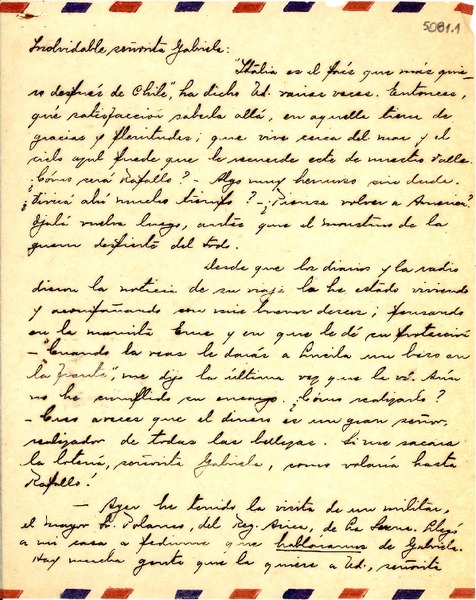 5081.1
Inolvidable, señorita Gabriela:
"Italia es el país que más quie-
ro después de Chile", ha dicho Ud. varias veces. Entonces,
qué satisfacción saberla allá, en aquella tierra de
gracias y plenitudes; que vive cerca del mar y el
cielo azul puede que le recuerde este de nuestro Valle.
¿Cómo será Rapallo? - Algo muy hermoso sin duda.
¿Vivirá ahí mucho tiempo? - ¿Piensa volver a America?
Ojalá vuelva luego, antes que el monstruo de la
guerra despierte del todo.
Desde que los diarios y la radio
dieron la noticia de su viaje la he estado viviendo
y acompañando con mis buenos deseos; pensando
en la mamita Eme y en que le dé su protección
- "Cuando la veas le darás a Lucila un beso en
la frente", me dijo la última vez que la ví. Aún
no he cumplido su encargo. ¿Cómo realizarlo?
- Creo a veces que el dinero es un gran señor,
realizador de todas las bellezas. Si me sacara
la lotería, señorita Gabriela, como volaría hasta
Rapallo!
- Ayer he tenido la visita de un militar,
el mayor Sr. Polanco, del Reg. Arica, de La Serena. Llegó
a mi casa a pedirme que habláramos de Gabriela.
Hay mucha gente que la quiere a Ud., señorita